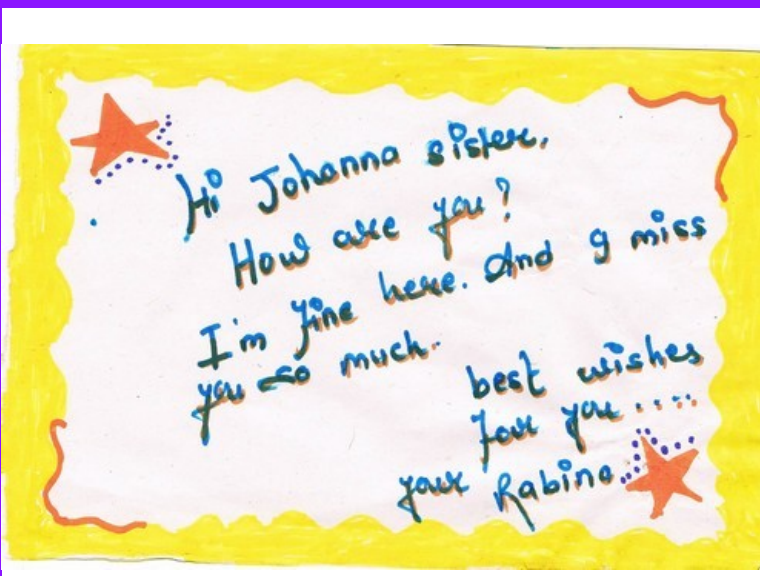 Hi Johanna sister.
How are you?
I'm fine here. And I miss
you so much.
best wishes
for you .....
your Rabina